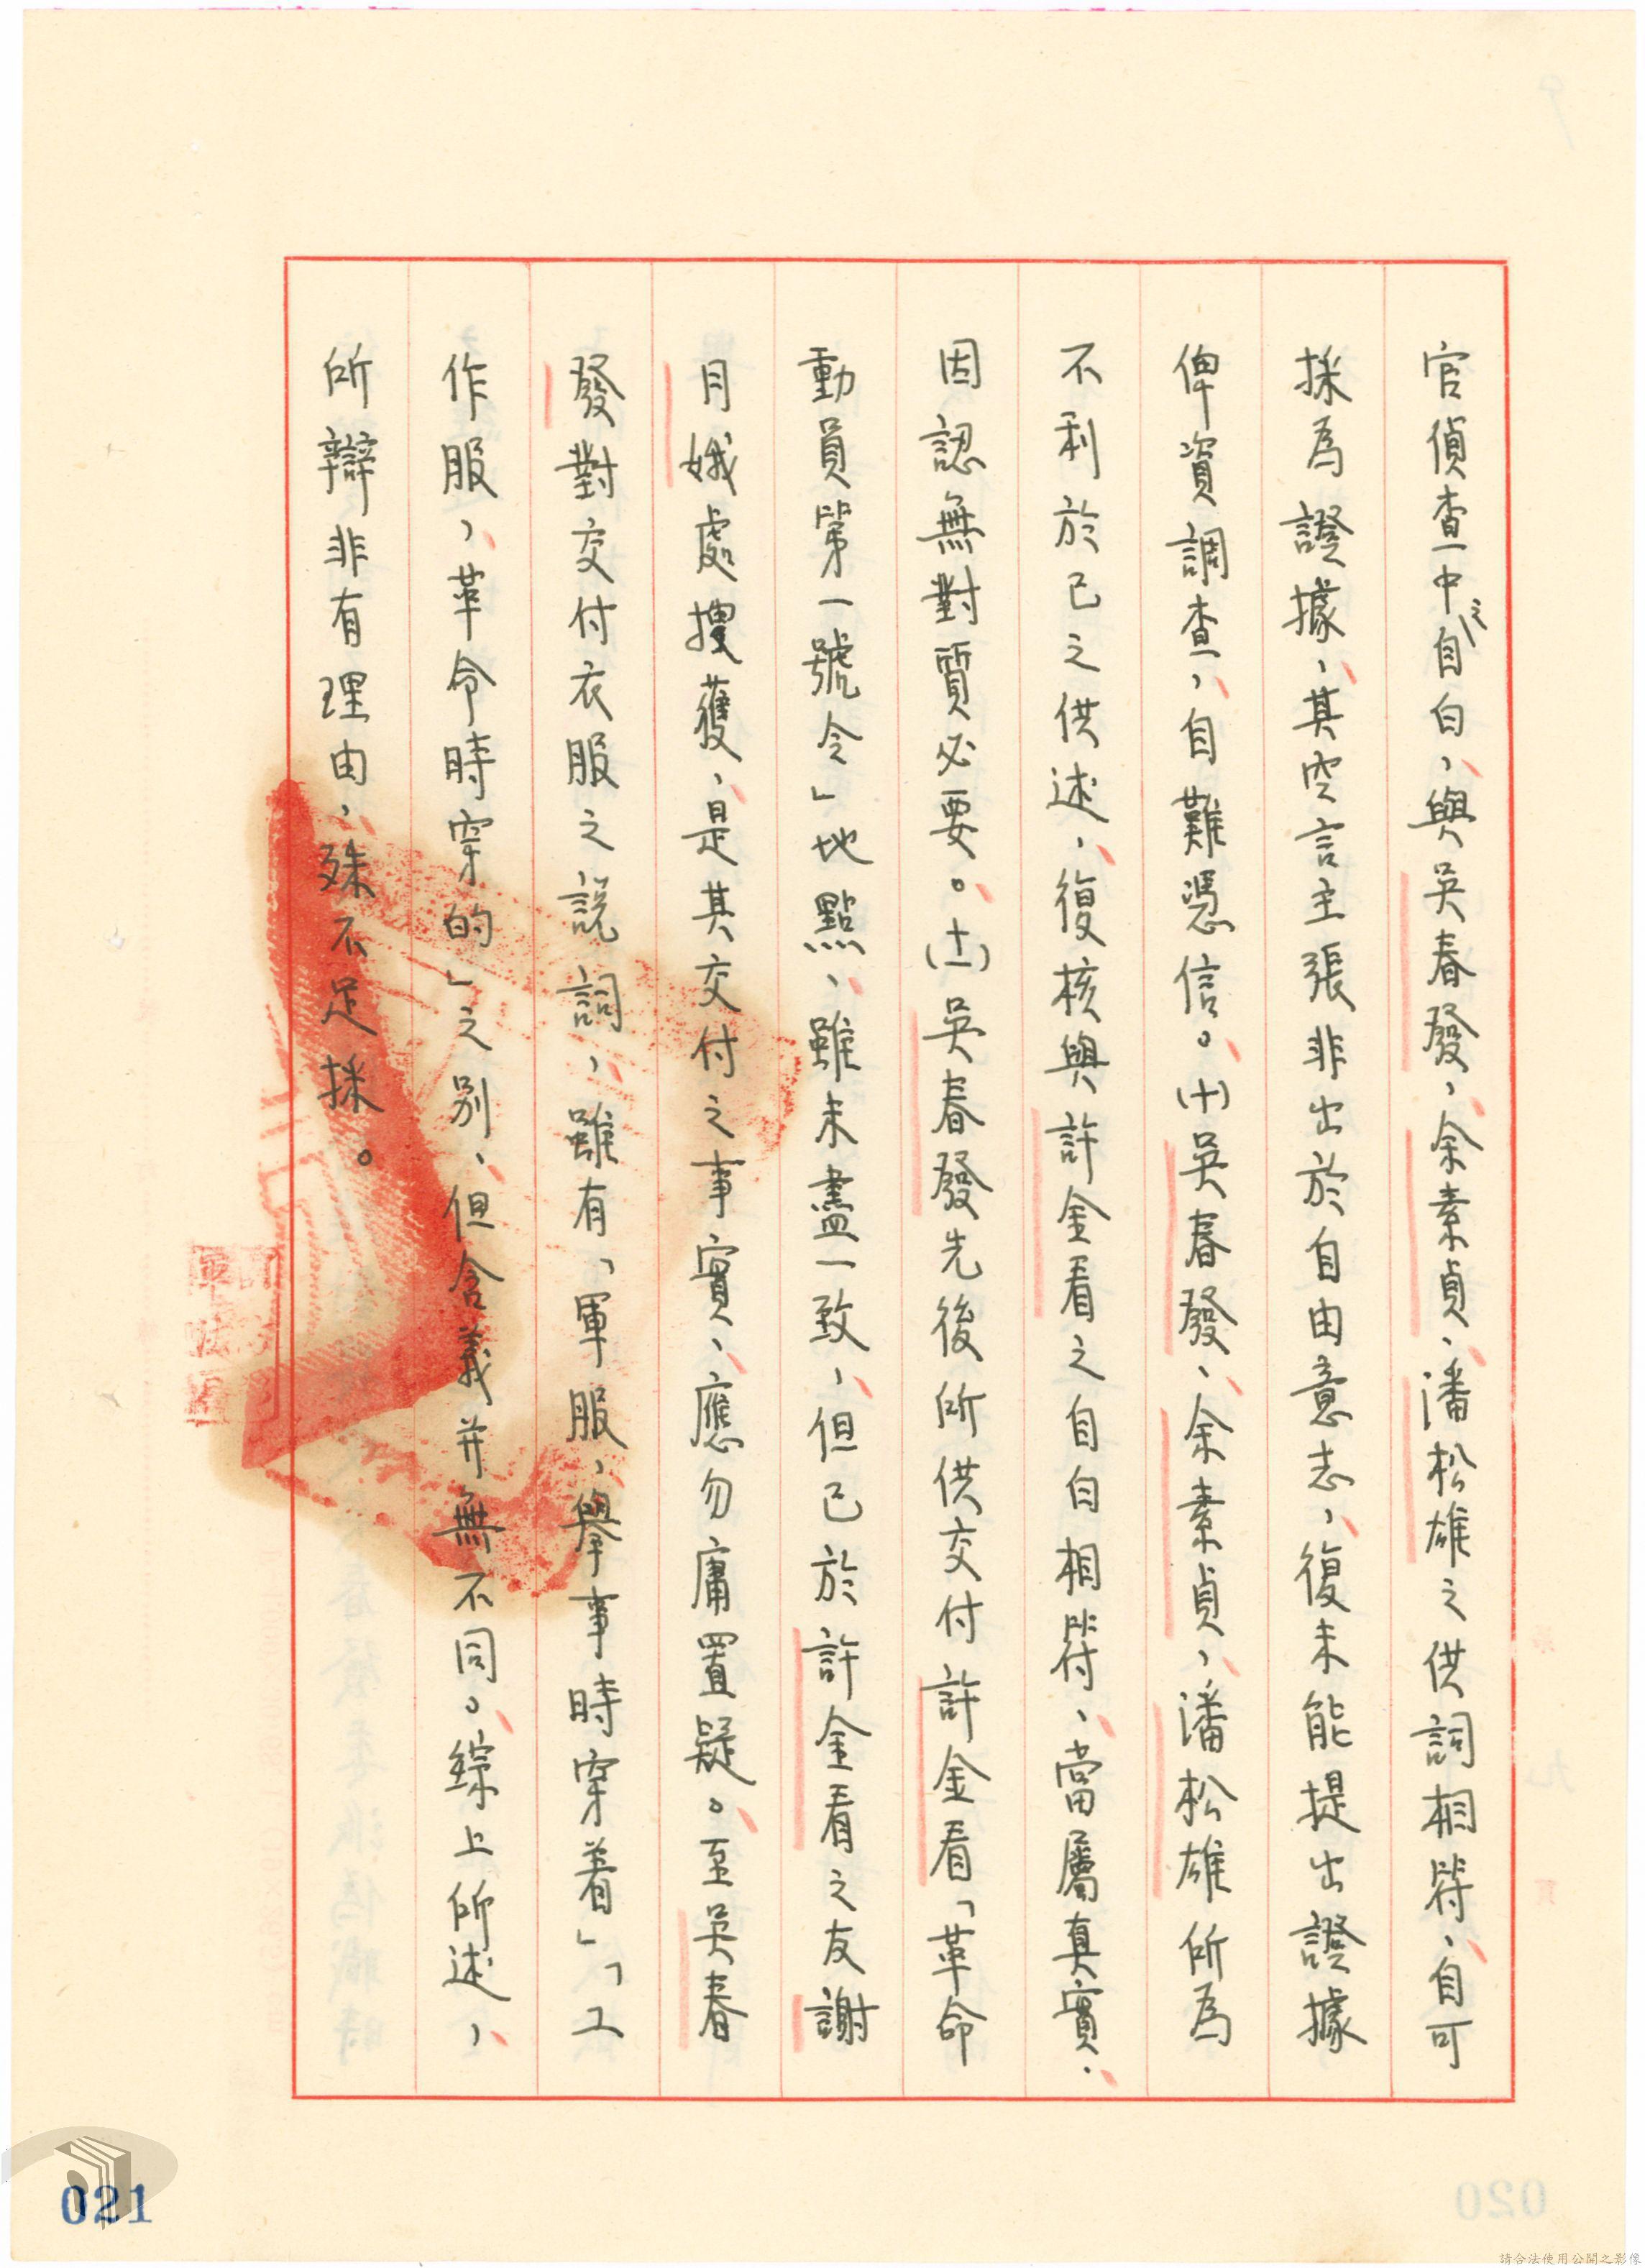 官偵查中之自白，與吳春發，余素貞，潘松雄之供詞相符，自可
採為證據，其空言主張非出於自由意志，復未能提出證據
俾資調查，自難憑信。(十)吳春發，余素貞，潘松雄所為
不利於己之供述，復核與許金看之自白相符，當屬真實，
因認無對質必要。(十一)吳春發先後所供交付許金看「革命
動員第一號令」地點，雖未盡一致，但已於許金看之友謝
月娥處搜獲，是其交付之事實，應勿庸置疑。至吳春
發對交付衣服之說詞，雖有「軍服，舉事時穿着」「工
作服，革命時穿的」之別，但含義并無不同。綜上所述，
所辯非有理由，殊不足採。
021
020
請合法使用公開之影像